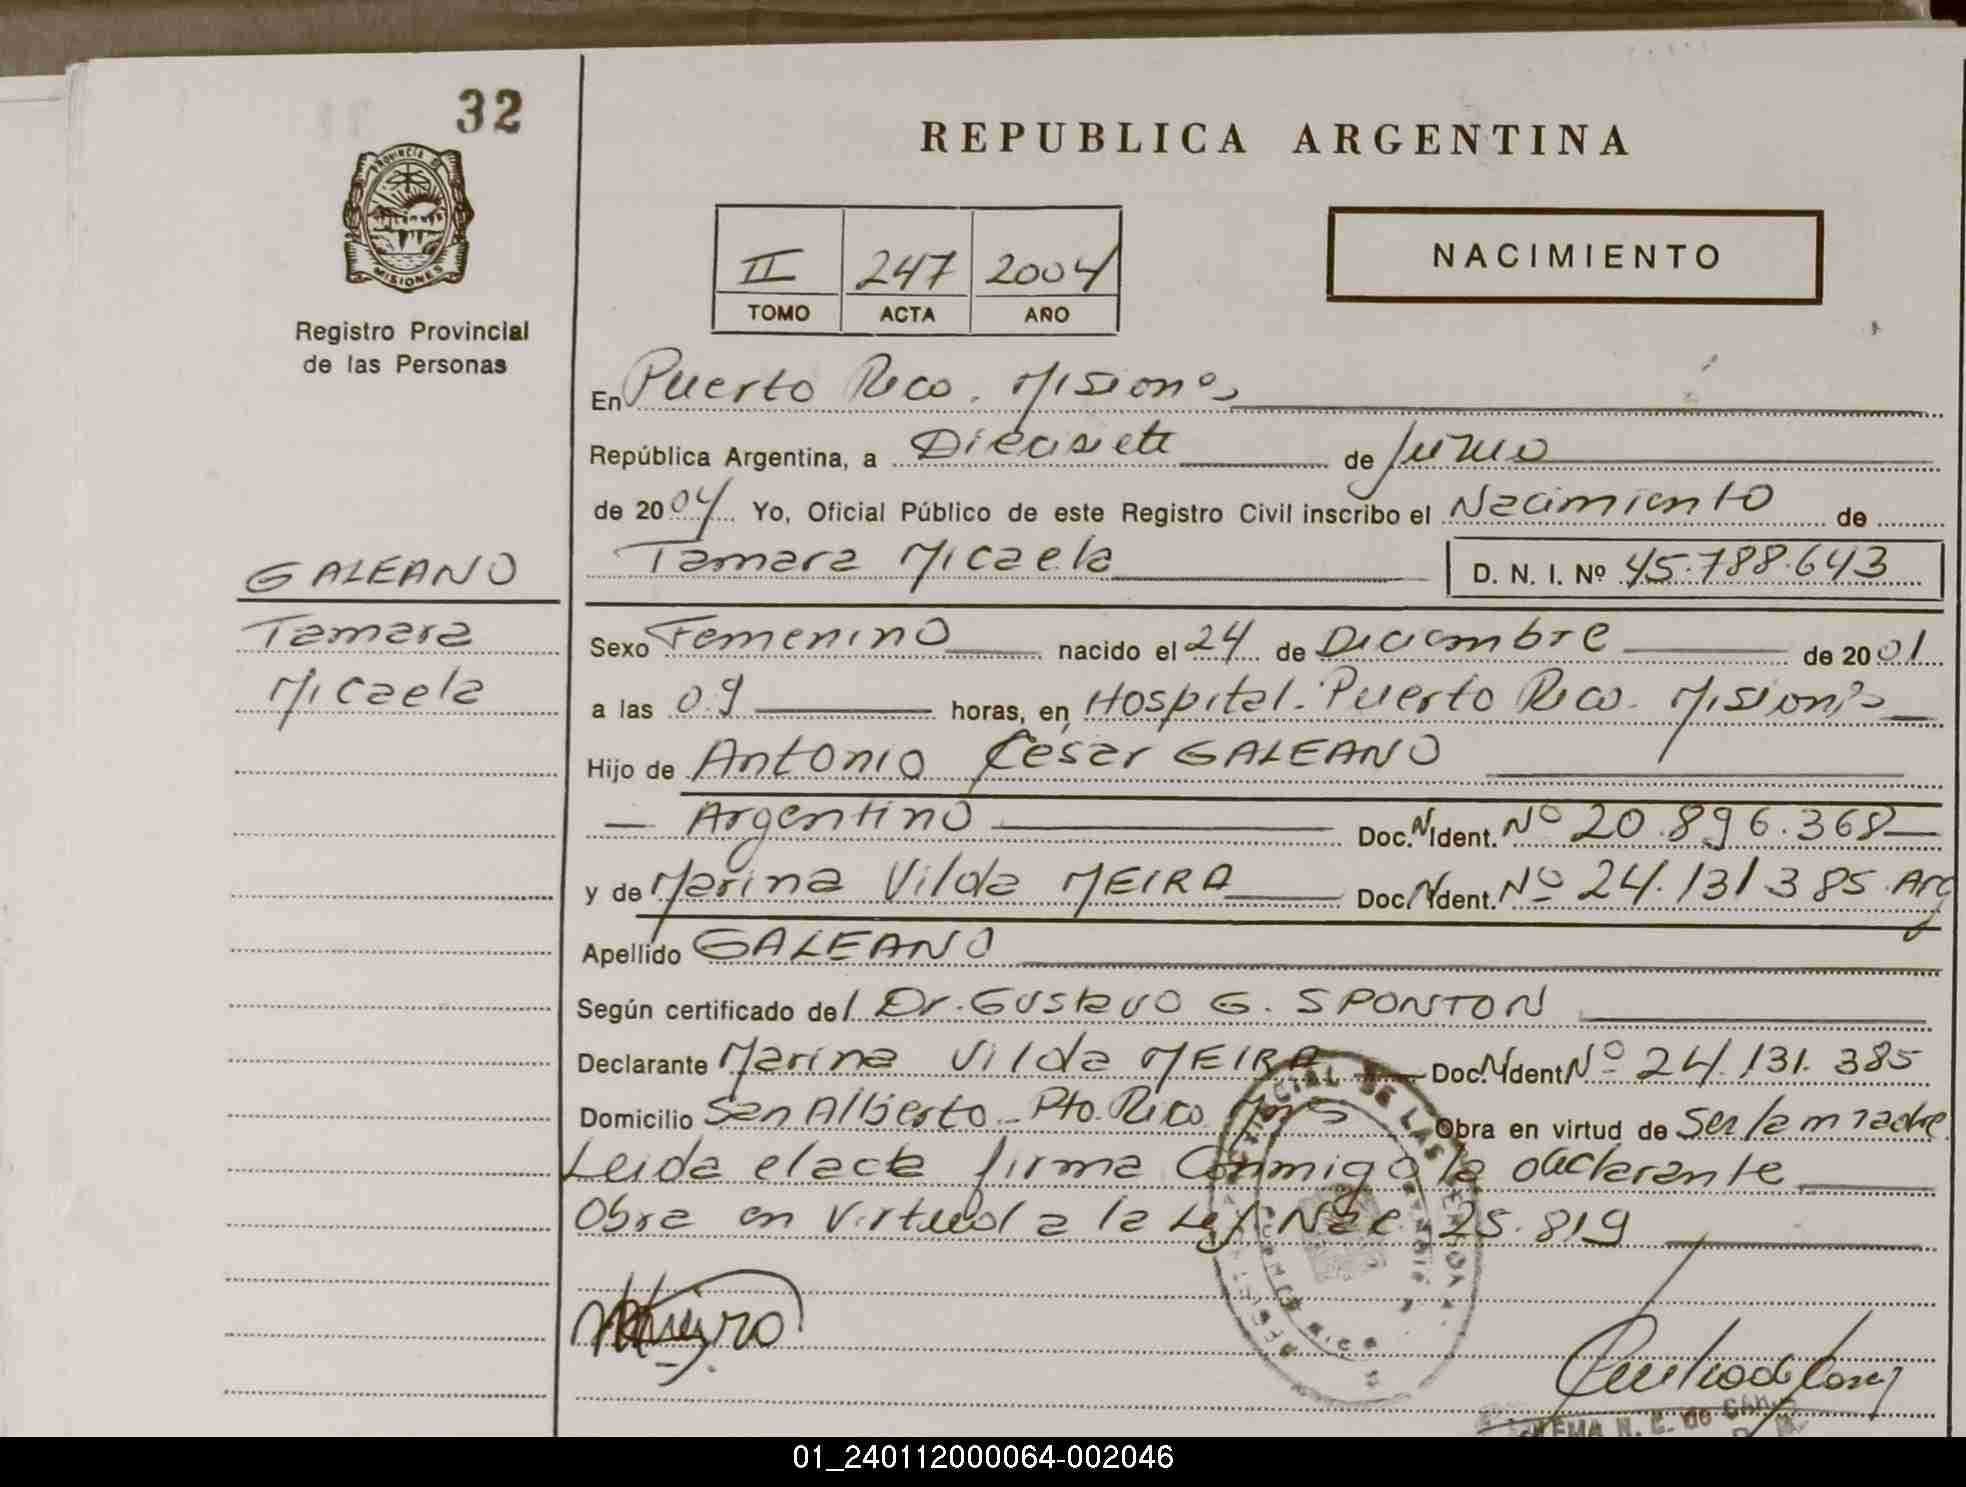 32
REPUBLICA ARGENTINA
PROVINCIA DE
MISIONES
Registro Provincial
de las Personas
II 247 2004
TOMO ACTA AÑO
NACIMIENTO
En Puerto Rico. Misiones
República Argentina, a Diecisiete de Junio
de 2004 Yo, Oficial Público de este Registro Civil inscribo el Nacimiento de
Tamara Micaela D. N. I. Nº 45.788.643
GALEANO
Tamara
Micaela
Sexo Femenino nacido el 24 de Diciembre de 2001
a las 09 horas, en Hospital. Puerto Rico. Misiones
Hijo de Antonio Cesar GALEANO
Argentino Doc. N Ident. Nº 20.896.368
y de Marina Vilda MEIRA Doc. N Ident. Nº 24.131385. Arg
Apellido GALEANO
Según certificado del Dr. Gustavo G. SPONTON
Declarante Marina Vilda MEIRA Doc. N Ident Nº 24.131.385
Domicilio San Alberto - Pto. Rico Mnes Obra en virtud de Ser la madre
Leida el acta firma Conmigo la declarante
Obra en virtud a la Ley Nac. 25.819
01_240112000064-002046